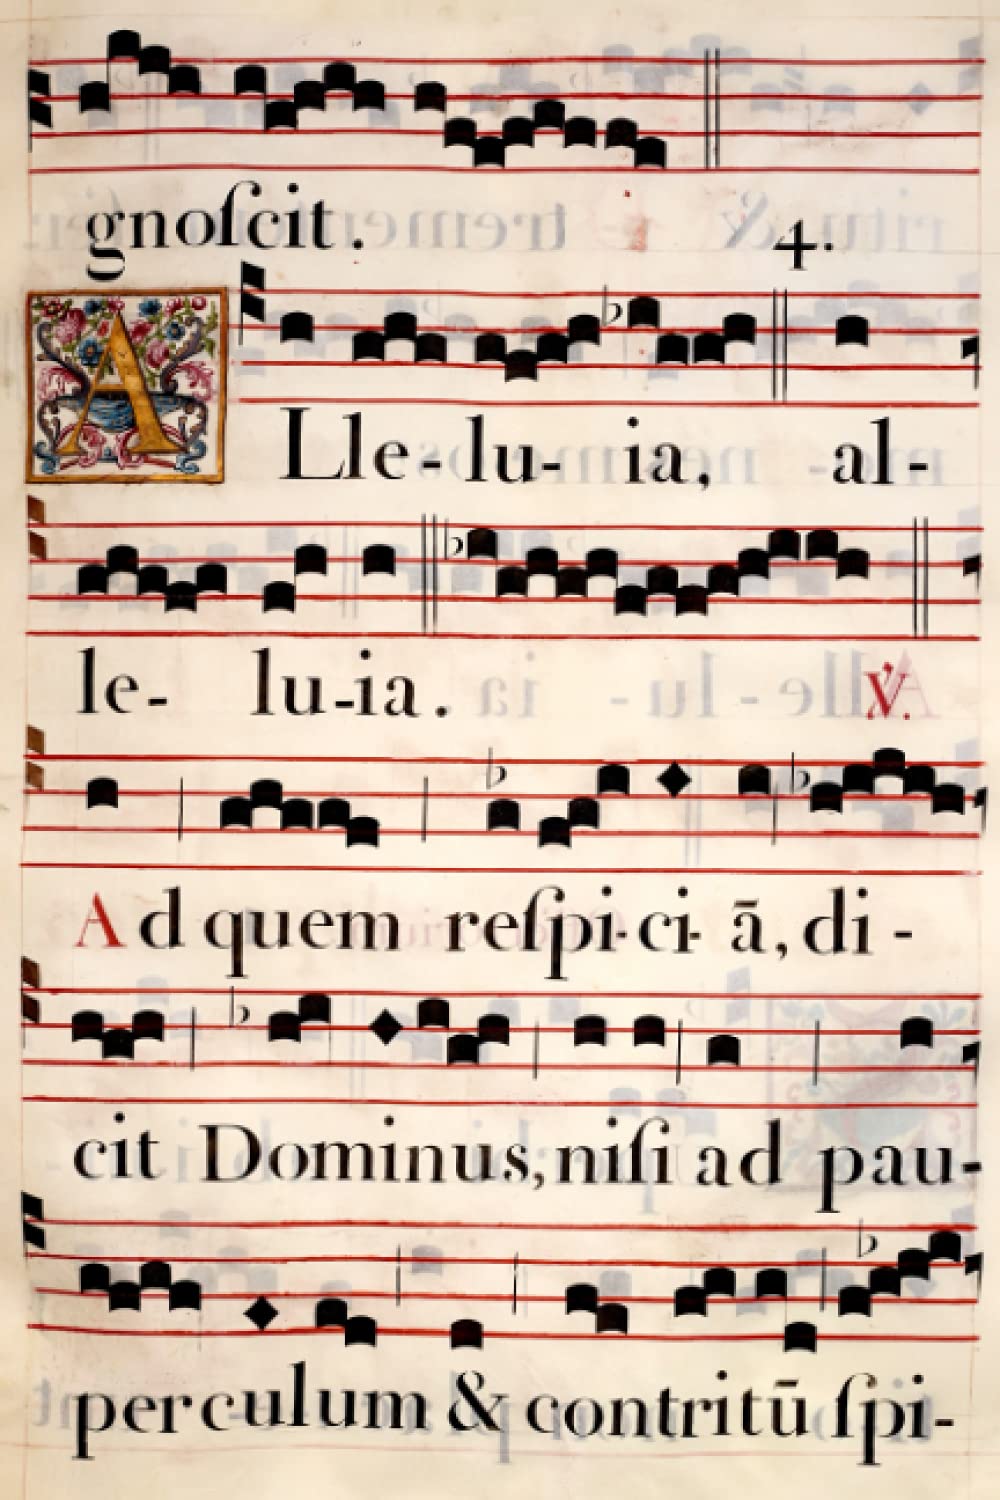 gnoſcit. 4.
ALle-lu-ia, al-
le-lu-ia. ℣.
Ad quem reſpi-ci-ā, di-
cit Dominus, niſi ad pau-
perculum & contritū ſpi-